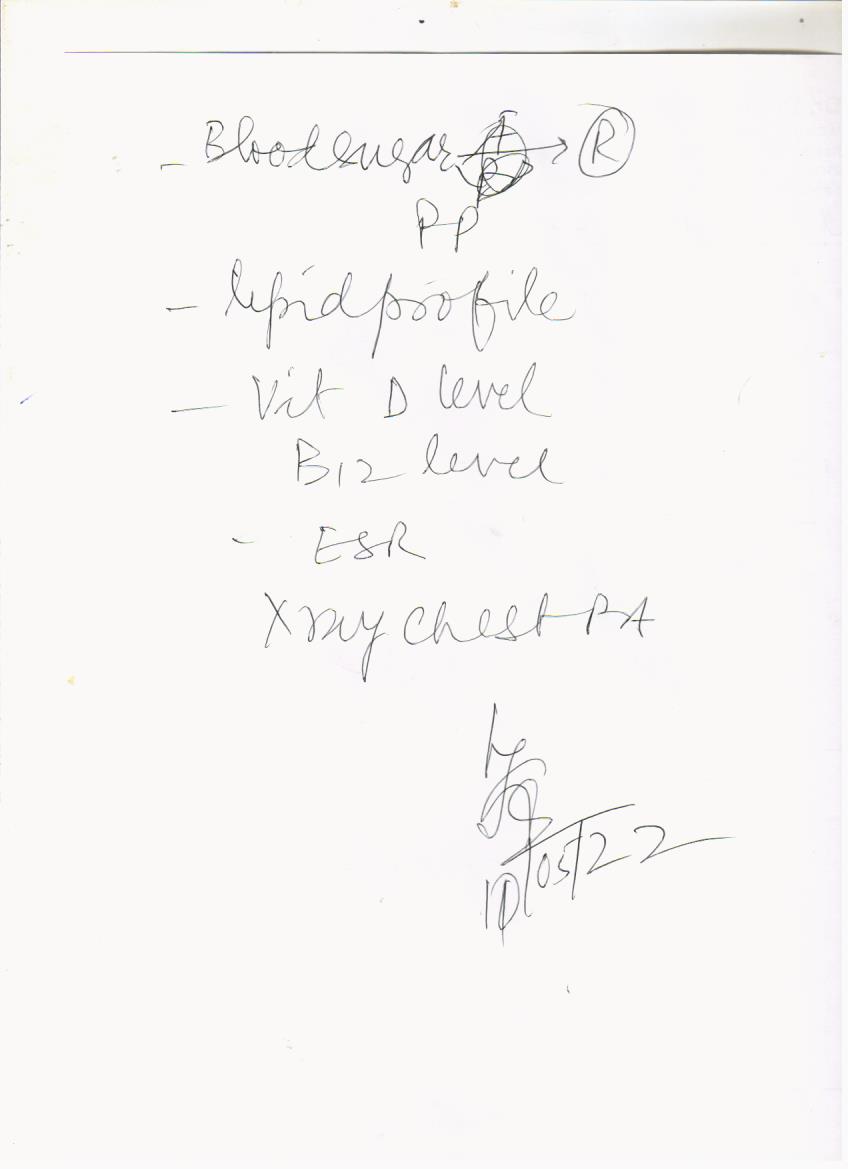 - Blood sugar → R
PP
- lipid profile
- Vit D level
B12 level
- ESR
X ray chest PA
10/05/22